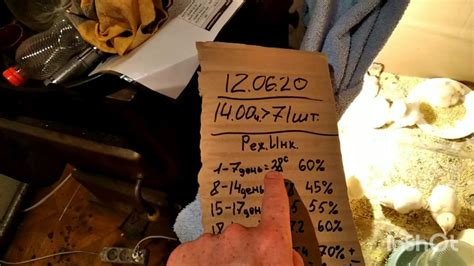 12.06.20
14.00ч.>71шт.
Реж.Инк.
1-7день= 38°С 60%
8-14день 45%
15-17день 55%
18 .2 60%
70%+
InShot